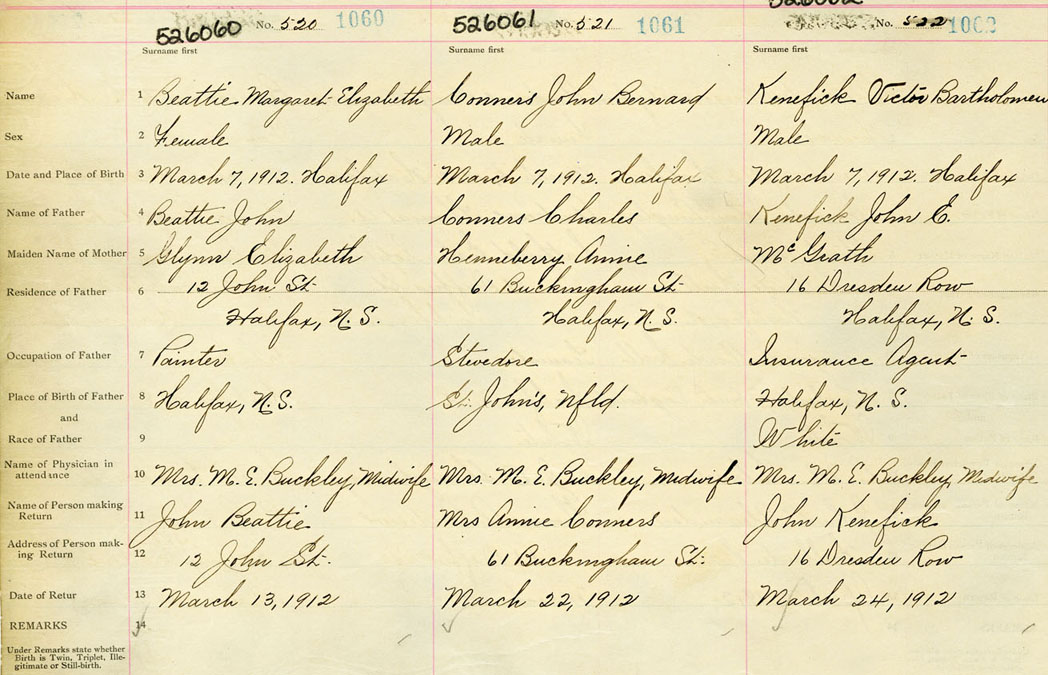 526060 No. 520 1060 526061 No. 521 1061 No. 522
Surname first Surname first Surname first
Name 1 Beattie Margaret Elizabeth Conners John Bernard Kenefick Victor Bartholomew
Sex 2 Female Male Male
Date and Place of Birth 3 March 7, 1912. Halifax March 7, 1912. Halifax March 7, 1912. Halifax
Name of Father 4 Beattie John Conners Charles Kenefick John E.
Maiden Name of Mother 5 Glynn Elizabeth Henneberry Annie McGrath
Residence of Father 6 12 John St. 61 Buckingham St. 16 Dresden Row
Halifax, N.S. Halifax, N.S. Halifax, N.S.
Occupation of Father 7 Painter Stevedore Insurance Agent
Place of Birth of Father 8 Halifax, N.S. St. John's, Nfld. Halifax, N.S.
and
Race of Father 9 White
Name of Physician in attendance 10 Mrs. M. E. Buckley, Midwife Mrs. M. E. Buckley, Midwife Mrs. M. E. Buckley Midwife
Name of Person making Return 11 John Beattie Mrs Annie Conners John Kenefick
Address of Person making Return 12 12 John St. 61 Buckingham St. 16 Dresden Row
Date of Retur 13 March 13, 1912 March 22, 1912 March 24, 1912
REMARKS 14
Under Remarks state whether
Birth is Twin, Triplet, Ille-
gitimate or Still-birth.